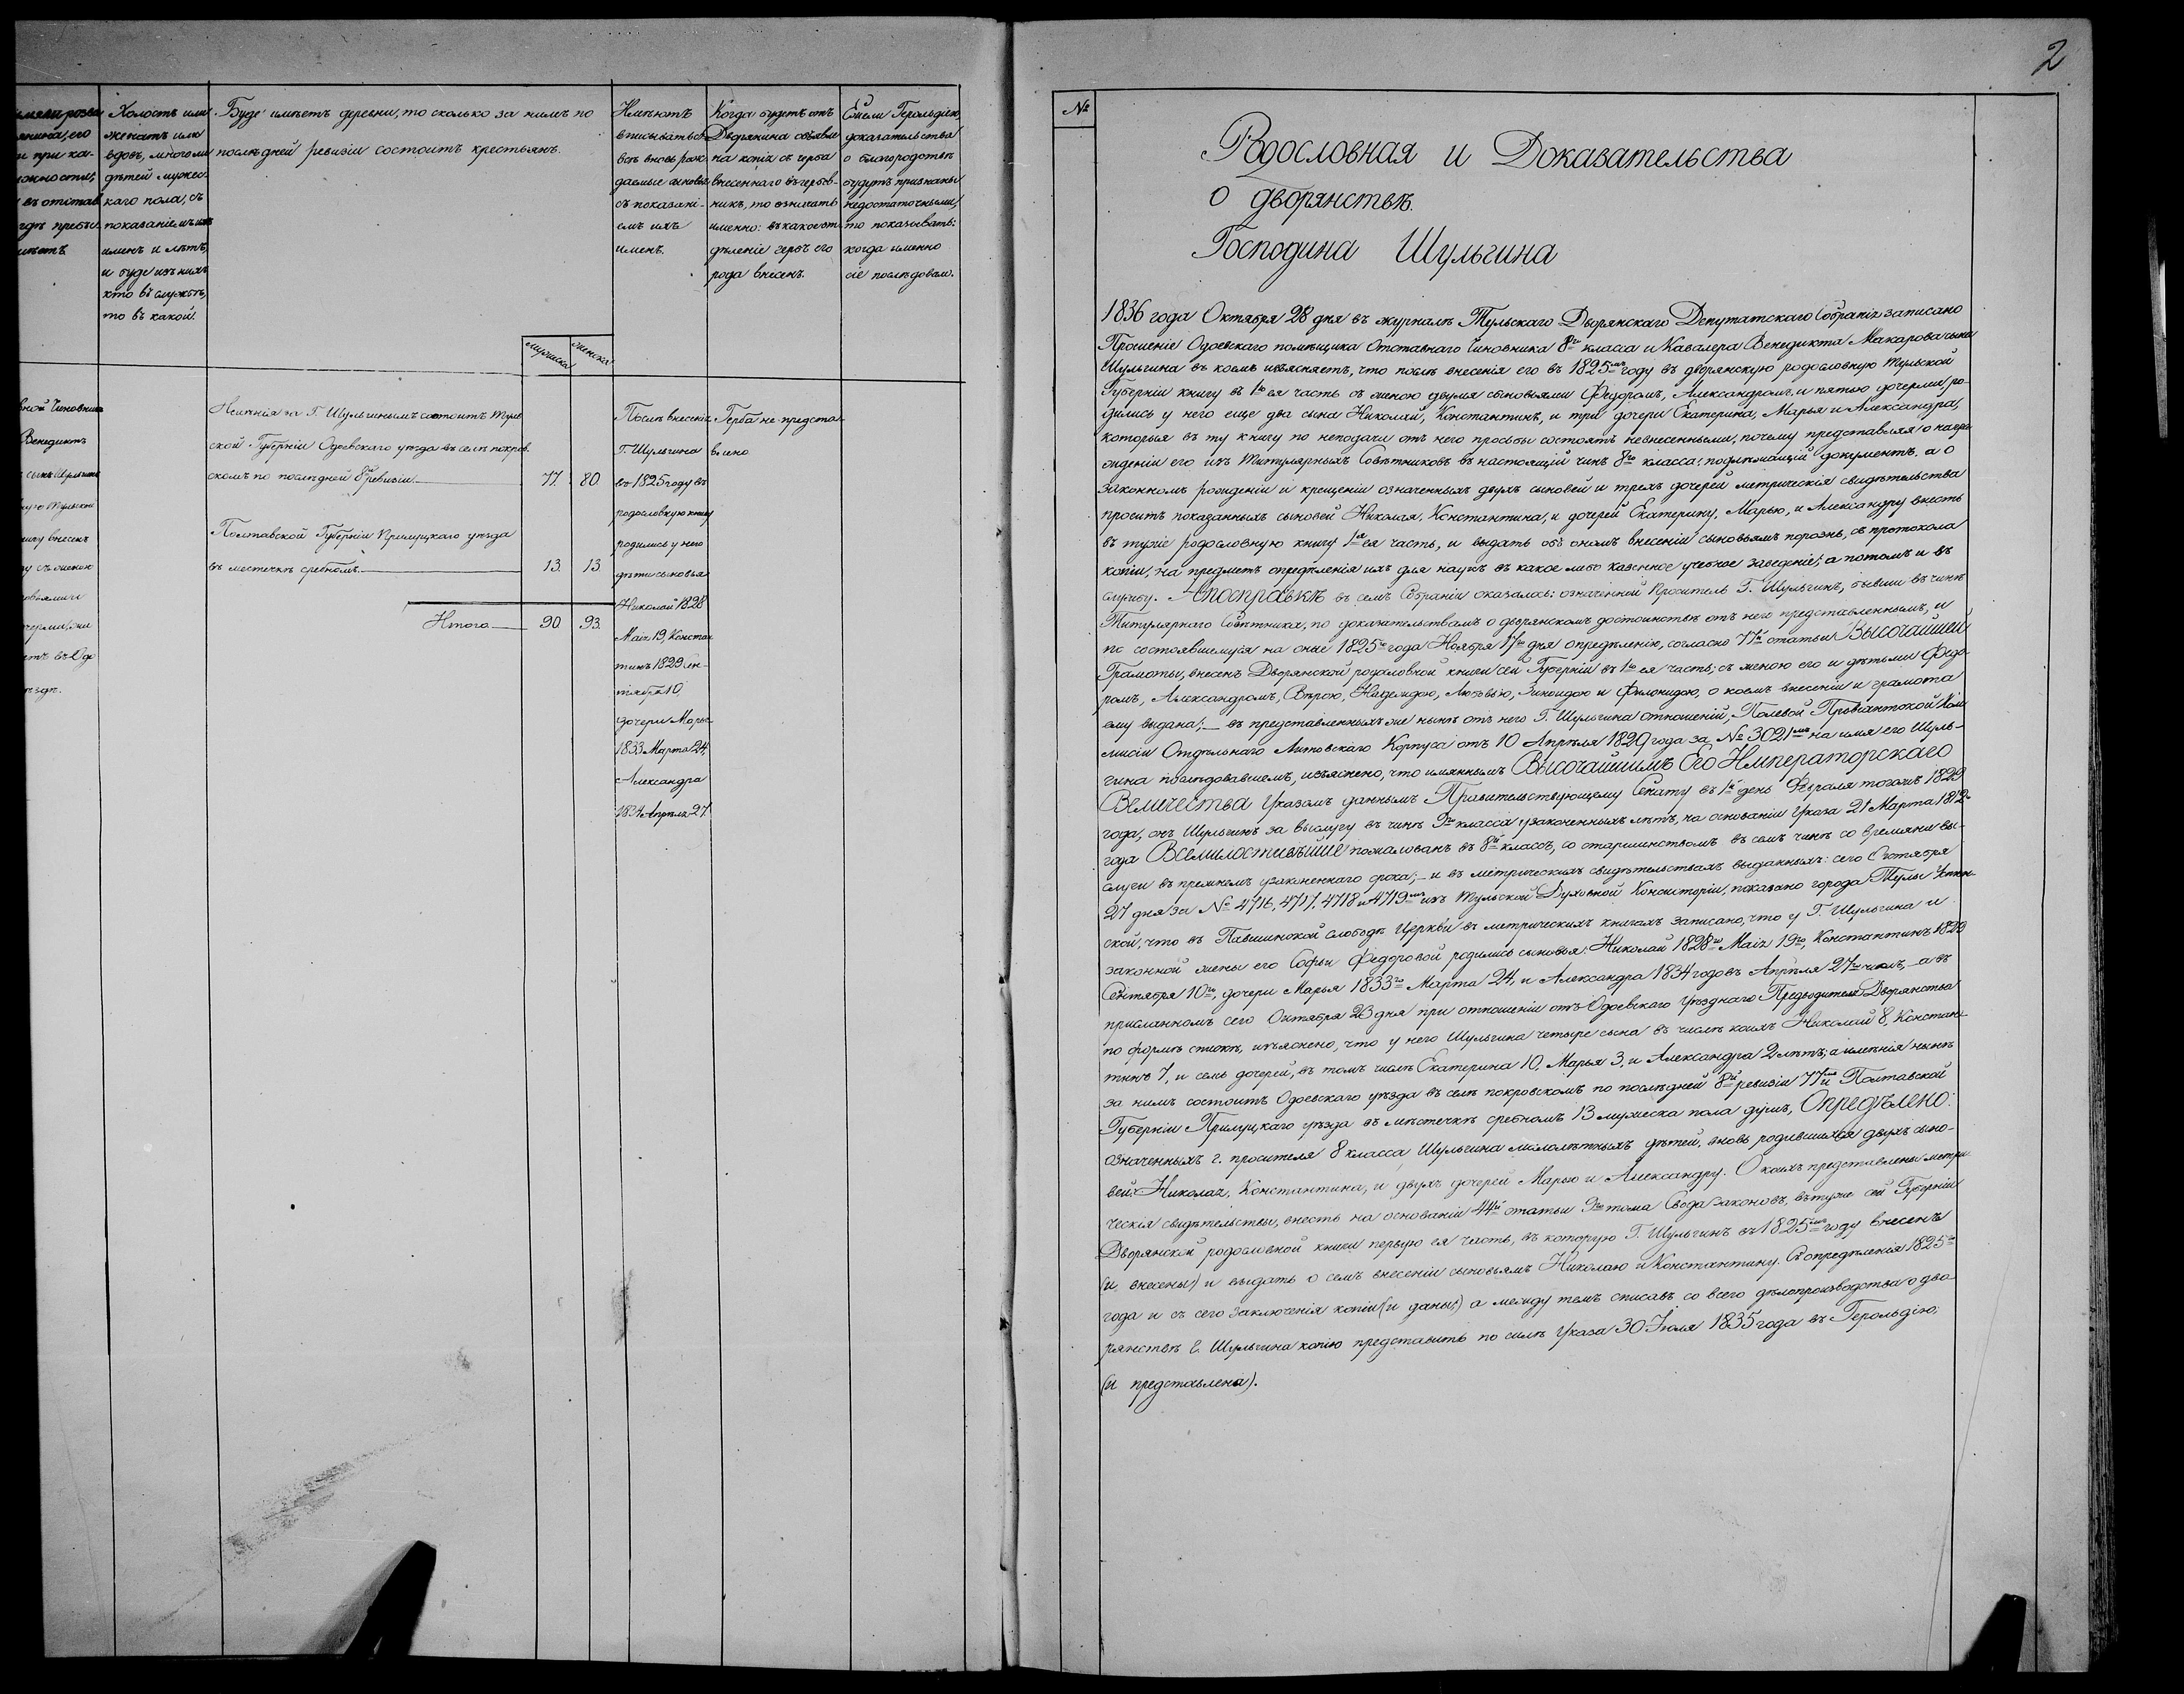 2
Холостъ или
женатъ или
вдовъ, много ли
дѣтей мужес-
каго пола, съ
показаніемъ ихъ
именъ и лѣтъ,
и буде изъ нихъ
кто въ службѣ,
то въ какой.
Буде имѣетъ деревни, то сколько за нимъ по
послѣдней ревизіи состоитъ крестьянъ.
мужеска
женска
Имѣютъ
вписываться
всѣ вновь рож-
даемые сыновья
съ показані-
емъ ихъ
именъ.
Когда будетъ отъ
Дворянина
на копія съ герба
внесеннаго въ гербов-
никъ, то означать
именно: въ какое от-
дѣленіе гербъ его
рода внесенъ.
Ежели Герольдіею,
доказательства
о благородствѣ
будутъ признаны
недостаточными,
то показывать:
когда именно
сіе послѣдовало.
Венедиктъ
Имѣнія за Г. Шульгинымъ состоитъ Туль
ской Губерніи Одоевскаго уѣзда въ селѣ покров
скомъ по послѣдней 8й ревизіи 77. 80.
Полтавской Губерніи Прилуцкаго уѣзда
въ местечкѣ сребномъ. 13. 13
Итого 90. 93.
Послѣ внесенія
Г. Шульгина
въ 1825 году въ
родословную книгу
родились у него
дѣти сыновья
Николай 1828
Маія 19, Констан
тинъ 1829 Сен-
тября 10
дочери Марья
1833 Марта 24,
Александра
1834 Апрѣля 27.
Герба не предста-
влено
№
Родословная и Доказательства
о дворянствѣ.
Господина Шульгина
1836 года Октября 28 дня въ журналѣ Тульскаго Дворянскаго Депутатскаго Собранія записано
Прошеніе Одоевскаго помѣщика Отставнаго Чиновника 8го класса и Кавалера Венедикта Макарова сына
Шульгина въ коемъ изъясняетъ, что послѣ внесенія его въ 1825мъ году въ дворянскую родословную Тульской
Губерніи книгу въ 1ю ея часть съ женою двумя сыновьями Федоромъ, Александромъ, и пятью дочерми, ро-
дились у него еще два сына Николай, Константинъ, и три дочери Екатерина, Марья и Александра,
которыя въ ту книгу по неподачи отъ него просьбы состоятъ невнесенными, почему представляя о награ
жденіи его изъ Титулярныхъ Совѣтниковъ въ настоящій чинъ 8го класса: подлѣжащій документъ, а о
законномъ рожденіи и крещеніи означенныхъ двухъ сыновей и трехъ дочерей метрическія свидѣтельства
проситъ показанныхъ сыновей Николая, Константина, и дочерей Екатерину, Марью, и Александру внесть
въ туже родословную книгу 1ю ея часть, и выдать объ ономъ внесеніи сыновьямъ порознь, съ протокола
копіи, на предметъ опредѣленія ихъ для наукъ въ какое либо казенное учебное заведеніе, а потомъ и въ
службу. А по справкѣ въ семъ Собраніи оказалось: означенной Проситель Г. Шульгинъ, бывши въ чинѣ
Титулярнаго Совѣтника, по доказательствамъ о дворянскомъ достоинствѣ отъ него представленнымъ, и
по состоявшемуся на оные 1825го года Ноября 17го дня опредѣленію, согласно 77й статьи Высочайшей
Грамоты, внесенъ Дворянской родословной книги сей Губерніи въ 1ю ея часть; съ женою его и дѣтьми Федо-
ромъ, Александромъ, Вѣрою, Надеждою, Любовью, Зинаидою и Филонидою, о коемъ внесеніи и грамота
ему выдана; — въ представленныхъ же нынѣ отъ него Г. Шульгина отношеній, Полевой Провіантской Ком
мисіи Отдѣльнаго Литовскаго Корпуса отъ 10 Апрѣля 1829 года за № 3021мъ на имя его Шуль-
гина послѣдовавшемъ, изъяснено, что имяннымъ Высочайшимъ Его Императорскаго
Величества Указомъ даннымъ Правительствующему Сенату въ 1й день Февраля тогожъ 1829
года, онъ Шульгинъ за выслугу въ чинѣ 9го класса узаконенныхъ лѣтъ, на основаніи Указа 21 Марта 1812
года Всемилостивѣйше пожалованъ въ 8й классъ, со старшинствомъ въ семъ чинѣ со времяни вы-
слуги въ прежнемъ узаконеннаго срока; — и въ метрическихъ свидѣтельствахъ выданныхъ: сего Октября
27 дня за № 4716, 4717, 4718 и 4719мъ изъ Тульской Духовной Консисторіи, показано города Тулы
ской, что въ Павшинской слободѣ Церкви въ метрическихъ книгахъ записано, что у Г. Шульгина и
законной жены его Софьи Федоровой родились сыновья: Николай 1828го Маія 19го, Константинъ 1829
Сентября 10го, дочери Марья 1833го Марта 24, и Александра 1834 годовъ Апрѣля 27го чиселъ, — а въ
присланномъ сего Октября 23 дня при отношеніи отъ Одоевскаго Уѣзднаго Предводителя Дворянства
по формѣ спискѣ, изъяснено, что у него Шульгина четыре сына въ числѣ коихъ Николай 8, Констан-
тинъ 7, и семь дочерей, въ томъ числѣ Екатерина 10, Марья 3, и Александра 2 лѣтъ; а имѣнія нынѣ
за нимъ состоитъ Одоевскаго уѣзда въ селѣ покровскомъ по послѣдней 8й ревизіи 77мь и Полтавской
Губерніи Прилуцкаго уѣзда въ мѣстечкѣ сребномъ 13 мужеска пола душъ, Опредѣлено:
означенныхъ г. просителя 8 класса Шульгина малолѣтныхъ дѣтей, вновь родившихся двухъ сыно-
вей: Николая, Константина, и двухъ дочерей Марью и Александру. О коихъ представлены метри
ческія свидѣтельствы, внесть на основаніи 44й статьи 9го тома Свода Законовъ, въ туже сей Губерніи
Дворянской родословной книги первую ея часть, въ которую Г. Шульгинъ въ 1825мъ году внесенъ
(и внесены) и выдать о семъ внесеніи сыновьямъ Николаю и Константину. Съ опредѣленія 1825го
года и съ сего заключенія копіи (и даны;) а между темъ списавъ со всего дѣлопроизводства о дво-
рянствѣ Г. Шульгина копію представить по силѣ Указа 30 Іюля 1835 года въ Герольдію;
(и представлена).